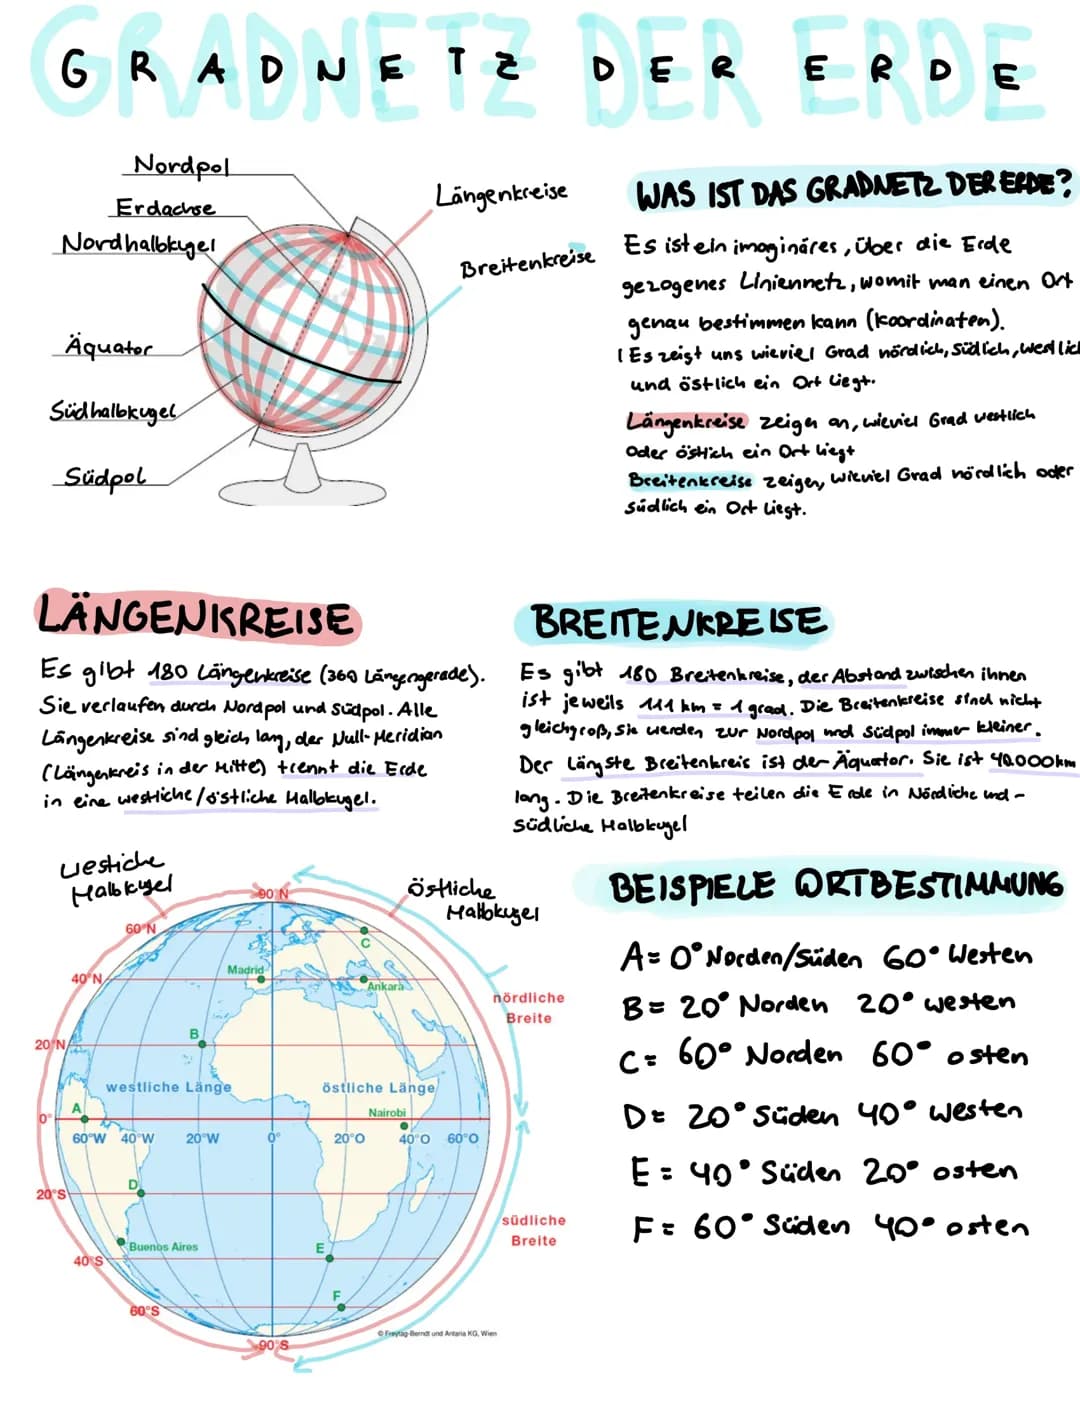 GRADNETZ DER ERDE
GRADNETZ DER ERDE
Nordpol
Erdachse
Nordhalbkugel
Äquator
Südhalbkugel
Südpol
Längenkreise
Breitenkreise
WAS IST DAS GRADNETZ DER ERDE?
Es ist ein imaginäres, über die Erde
gezogenes Liniennetz, womit man einen Ort
genau bestimmen kann (Koordinaten).
! Es zeigt uns wieviel Grad nördlich, südlich, westlich
und östlich ein Ort liegt.
Längenkreise zeigen an, wieviel Grad westlich
oder östlich ein Ort liegt
Breitenkreise zeigen, wieviel Grad nördlich oder
südlich ein Ort liegt.
LÄNGENKREISE
Es gibt 180 Längenkreise (360 Längengerade).
Sie verlaufen durch Nordpol und Südpol. Alle
Längenkreise sind gleich lang, der Null-Meridian
(Längenkreis in der Mitte) trennt die Erde
in eine westliche/östliche Halbkugel.
BREITENKREISE
Es gibt 180 Breitenkreise, der Abstand zwischen ihnen
ist jeweils 111 km = 1 grad. Die Breitenkreise sind nicht
gleichgroß, sie werden zur Nordpol und Südpol immer kleiner.
Der längste Breitenkreis ist der Äquator. Sie ist 40.000km
lang. Die Breitenkreise teilen die Erde in Nördliche und -
südliche Halbkugel
westliche
Halbkugel
östliche
Halbkugel
90°N
60°N
C
40°N
Madrid
Ankara
nördliche
Breite
B
20°N
westliche Länge
östliche Länge
A
Nairobi
0°
60°W 40°W 20°W 0° 20°O 40°O 60°O
D
20°S
südliche
Breite
Buenos Aires
E
40°S
F
60°S
90°S
© Freytag-Berndt und Artaria KG, Wien
BEISPIELE ORTBESTIMMUNG
A= 0° Norden/Süden 60° Westen
B= 20° Norden 20° westen
C= 60° Norden 60° osten
D= 20° Süden 40° westen
E = 40° Süden 20° osten
F= 60° Süden 40° osten